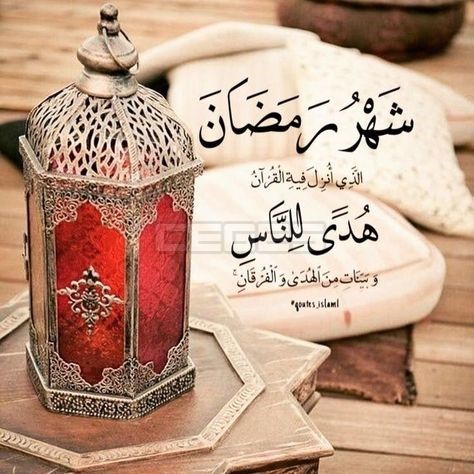 شَهْرُ رَمَضَانَ
الَّذِي أُنْزِلَ فِيةِ الْقُرْآنُ
هُدًى لِلنَّاسِ
وَبَيِّنَاتٍ مِنَ الْهُدَىٰ وَالْفُرْقَانِ ۚ
#qoutes_islaml